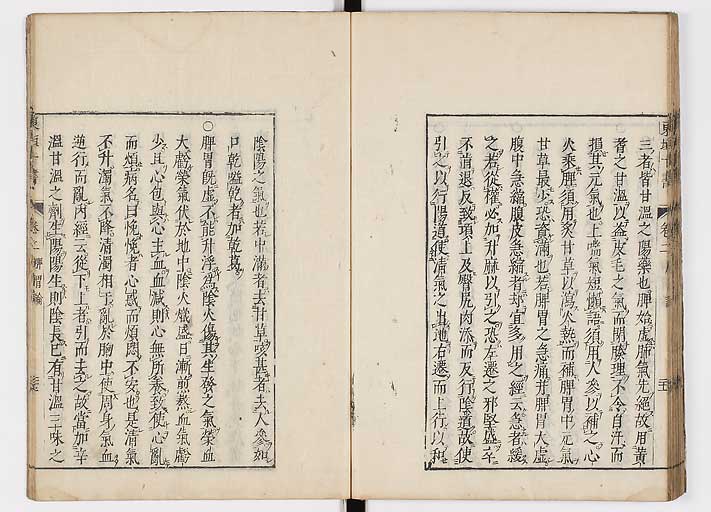 三者皆甘溫之陽藥也脾始虛肺氣先絕故用黃
耆之甘溫以益皮毛之氣而閉腠理不令自汗而
損其元氣也上喘氣短懶語須用人參以補之心
火乘脾須用炙甘草以瀉火熱而補脾胃中元氣
甘草最少恐資滿也若脾胃之急痛并脾胃大虛
腹中急縮腹皮急縮者却宜多用之經云急者緩
之若從權必加升麻以引之恐左遷之邪堅盛卒
不肯退反致項上及臀尻肉添而反行陰道故使
引之以行陽道使清氣之出地右遷而上行以和
陰陽之氣也若中滿者去甘草咳甚者去人參如
口乾嗌乾者加乾葛
○脾胃既虛不能升浮爲陰火傷其生發之氣榮血
大虧榮氣伏於地中陰火熾盛日漸煎熬血氣虧
少且心包與心主血血減則心無所養致使心亂
而煩病名曰悗悗者心惑而煩悶不安也是清氣
不升濁氣不降清濁相干亂於胸中使周身氣血
逆行而亂內經云從下上者引而去之故當加辛
溫甘溫之劑生陽陽生則陰長已有甘溫三味之
東垣十書
卷二
脾胃論